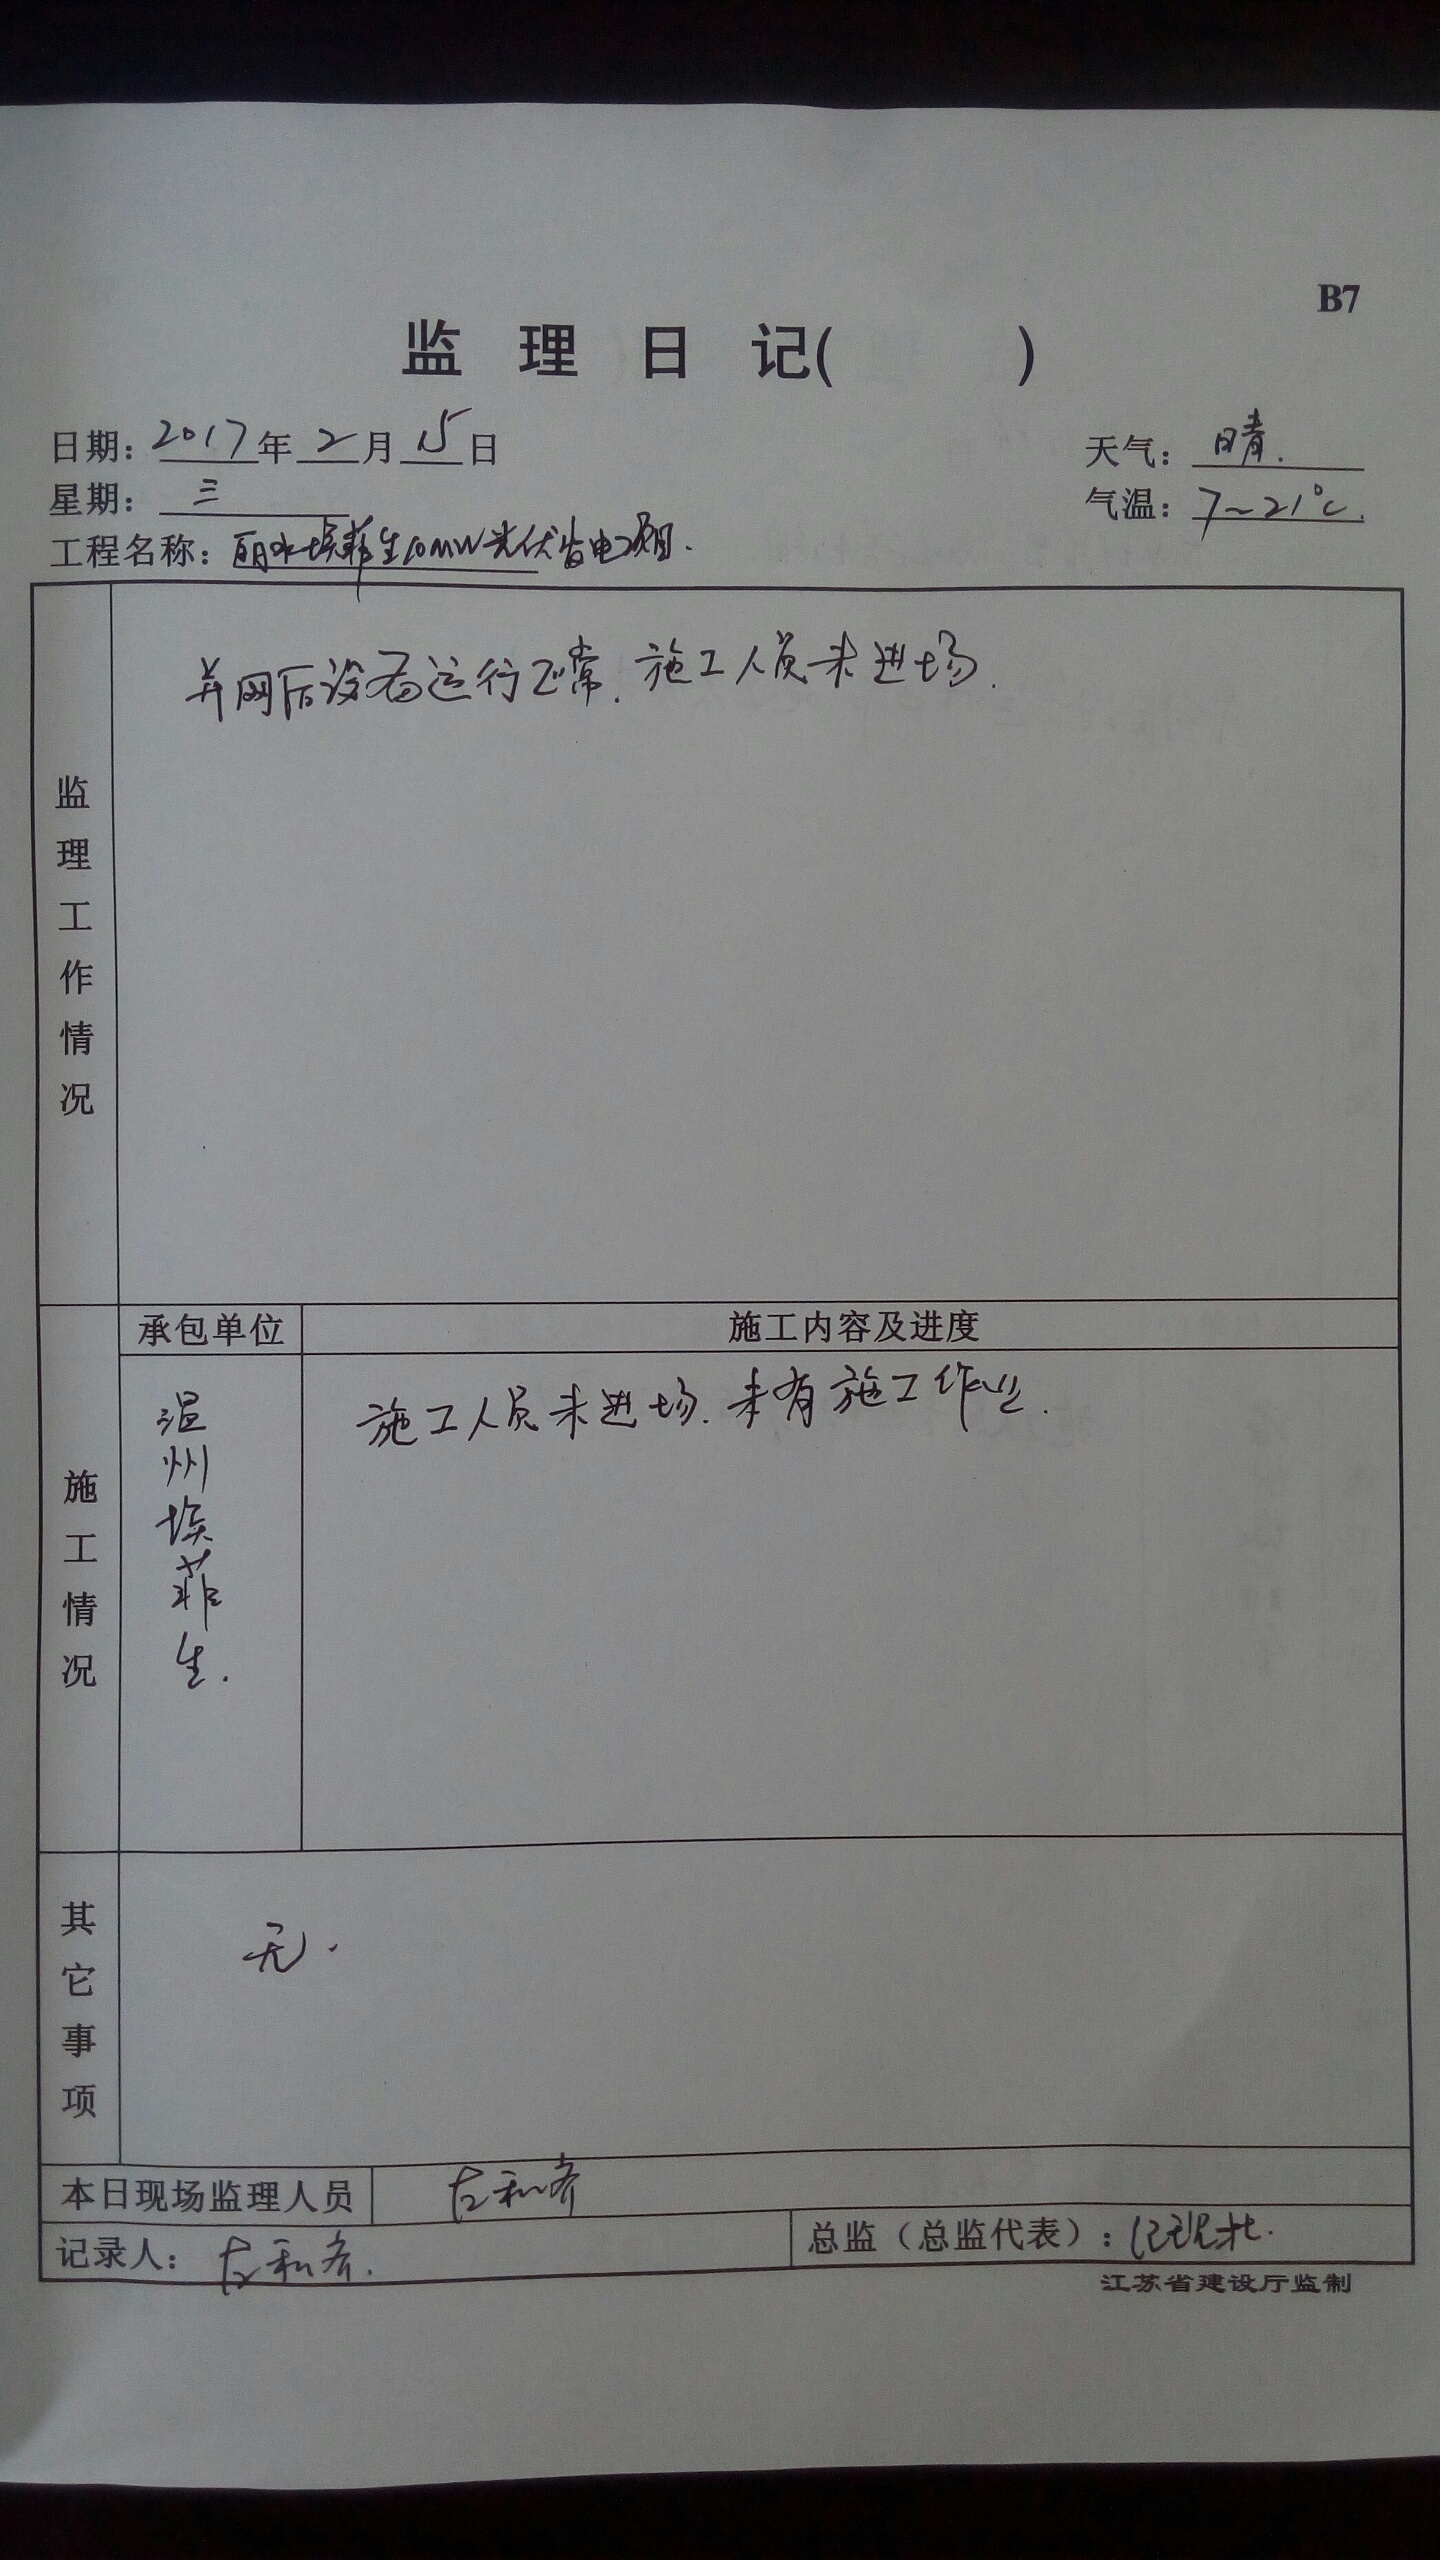 B7
监理日记(　　)
日期：2017年2月15日
天气：晴.
星期：三
气温：7~21℃.
工程名称：丽水埃菲生10MW光伏发电项目.
监理工作情况
并网后设备运行正常.施工人员未进场.
施工情况
承包单位
施工内容及进度
温州埃菲生.
施工人员未进场.未有施工作业.
其它事项
无.
本日现场监理人员
记录人：
总监（总监代表）：
江苏省建设厅监制